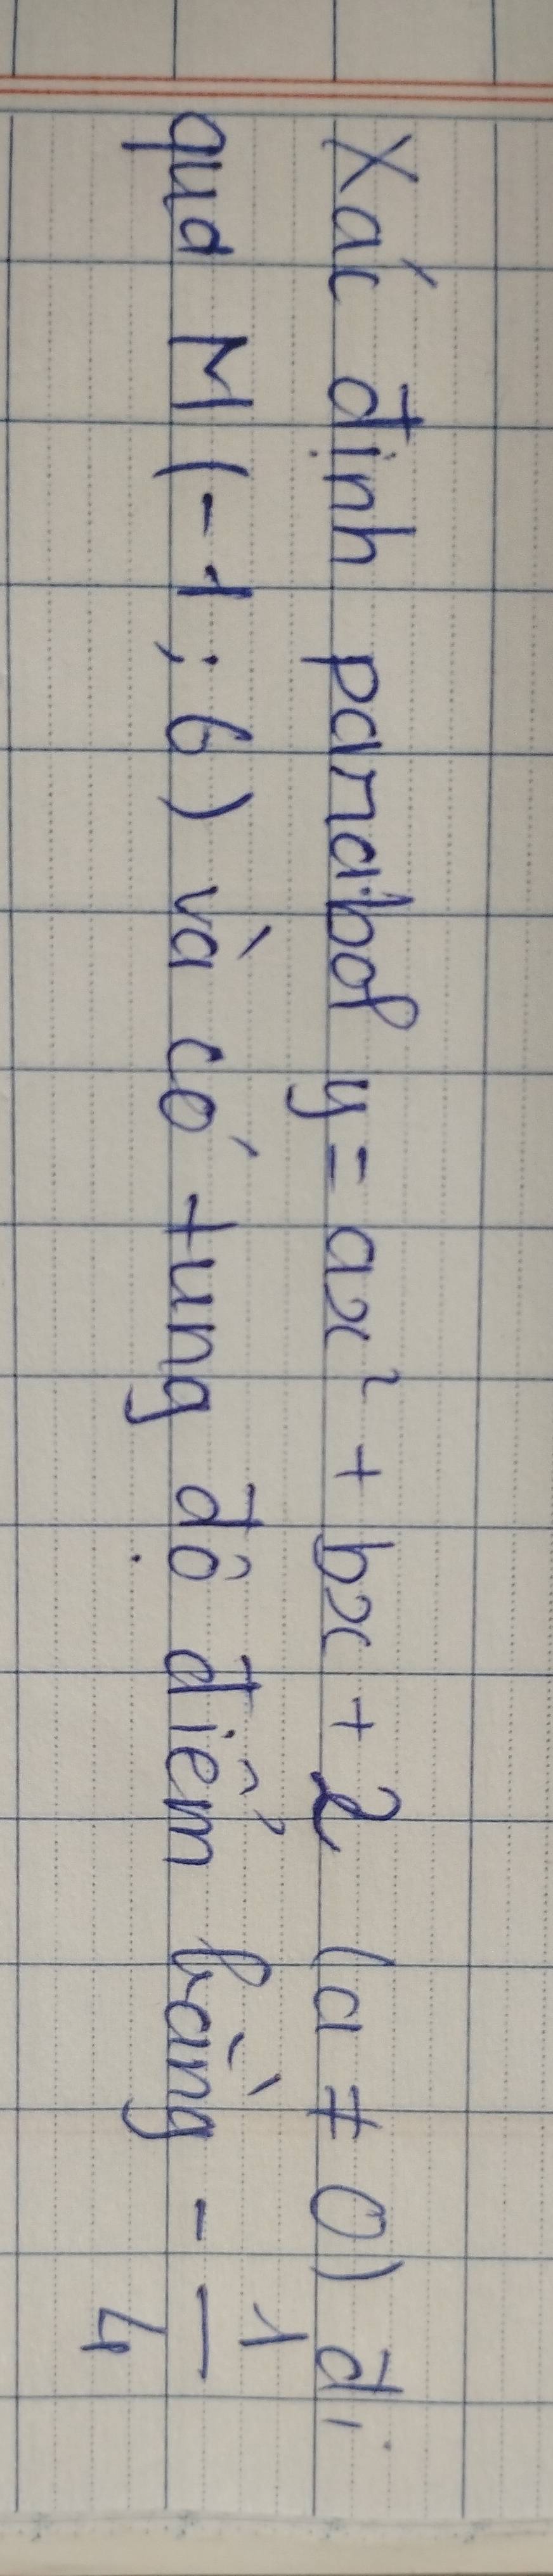 Xác định parabol y = ax² + bx + 2 (a ≠ 0) đi
qua M (-1 ; 6) và có tung độ điểm bằng - 1/4